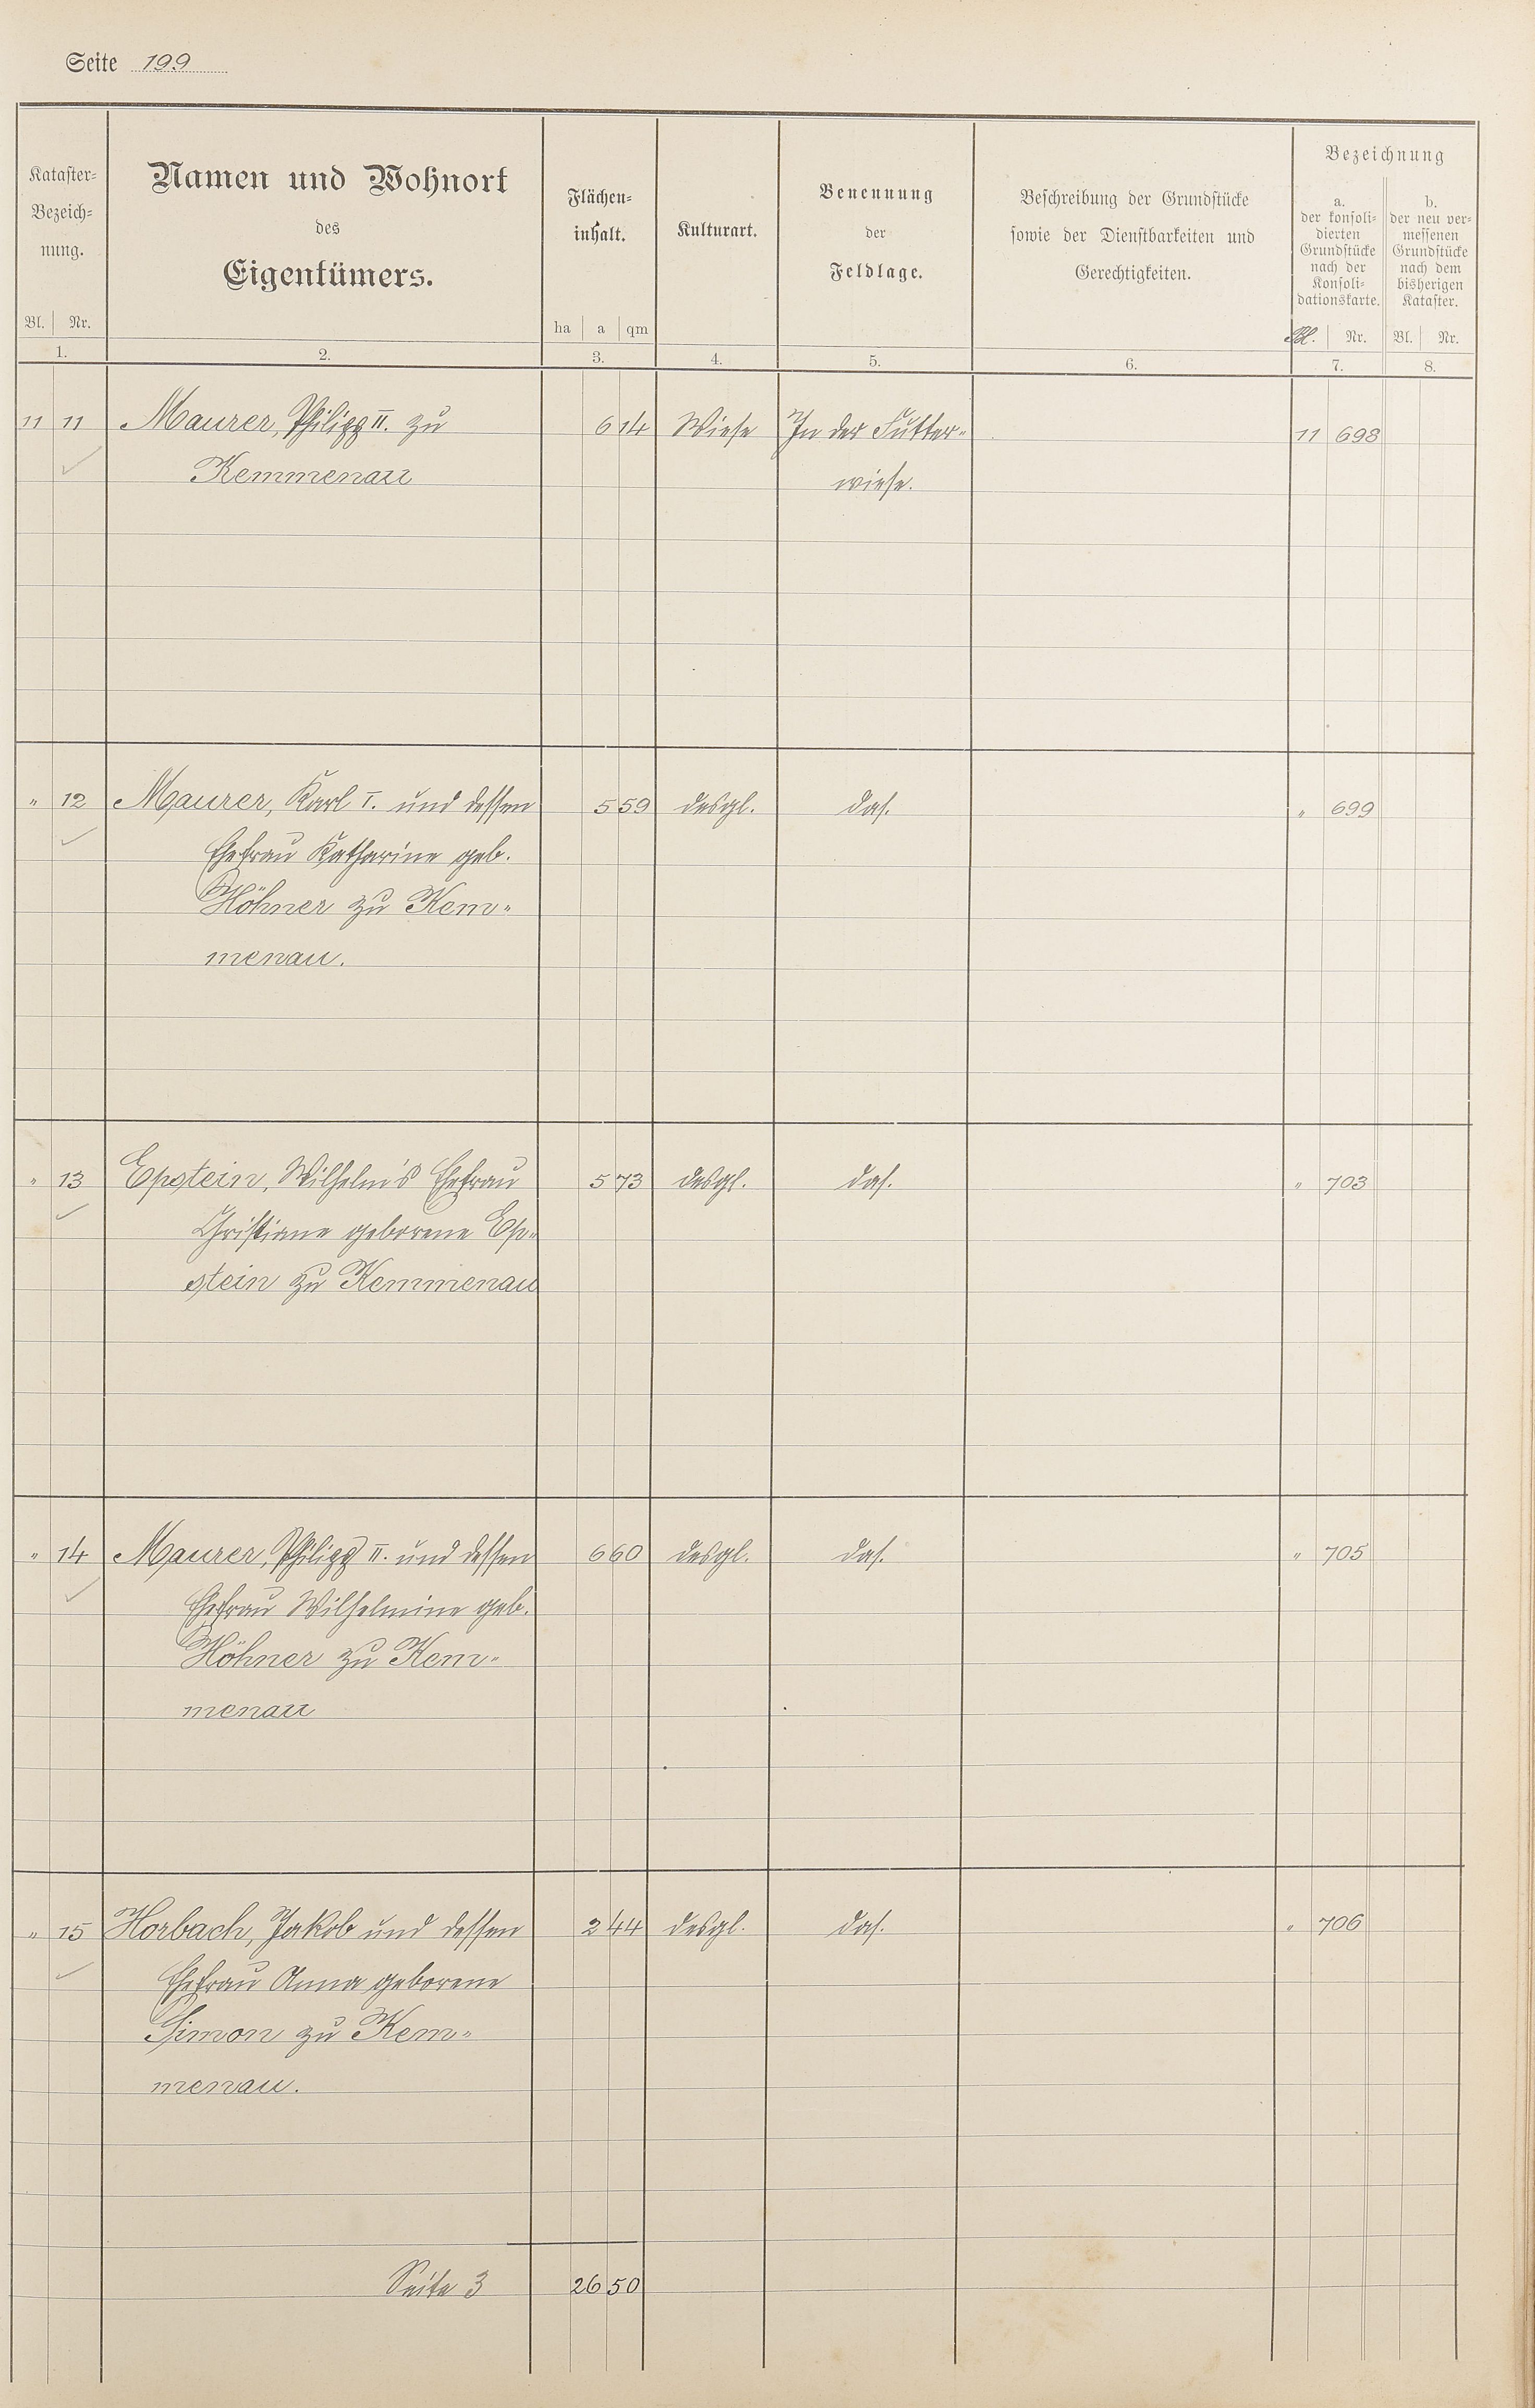 Seite 199
Kataster-
Bezeich-
nung.
Bl. Nr.
1.
Namen und Wohnort
des
Eigentümers.
2.
Flächen-
inhalt.
ha a qm
3.
Kulturart.
4.
Benennung
der
Feldlage.
5.
Beschreibung der Grundstücke
sowie der Dienstbarkeiten und
Gerechtigkeiten.
6.
Bezeichnung
a.
der konsoli-
dierten
Grundstücke
nach der
Konsoli-
dationskarte.
Bl. Nr.
7.
b.
der neu ver-
messenen
Grundstücke
nach dem
bisherigen
Kataster.
Bl. Nr.
8.
11 11 Maurer, Philipp II. zu 6 14 Wiese In der Futter- 11 698
Kemmenau wiese.
" 12 Maurer, Karl I. und dessen 5 59 desgl. das. " 699
Ehefrau Katharine geb.
Höhner zu Kem-
menau.
" 13 Epstein, Wilhelm's Ehefrau 5 73 desgl. das. " 703
Christiane geborene Ep-
stein zu Kemmenau
" 14 Maurer, Philipp II. und dessen 6 60 desgl. das. " 705
Ehefrau Wilhelmine geb.
Höhner zu Kem-
menau
" 15 Horbach, Jakob und dessen 2 44 desgl. das. " 706
Ehefrau Anna geborene
Simon zu Kem-
menau.
Seite 3 26 50